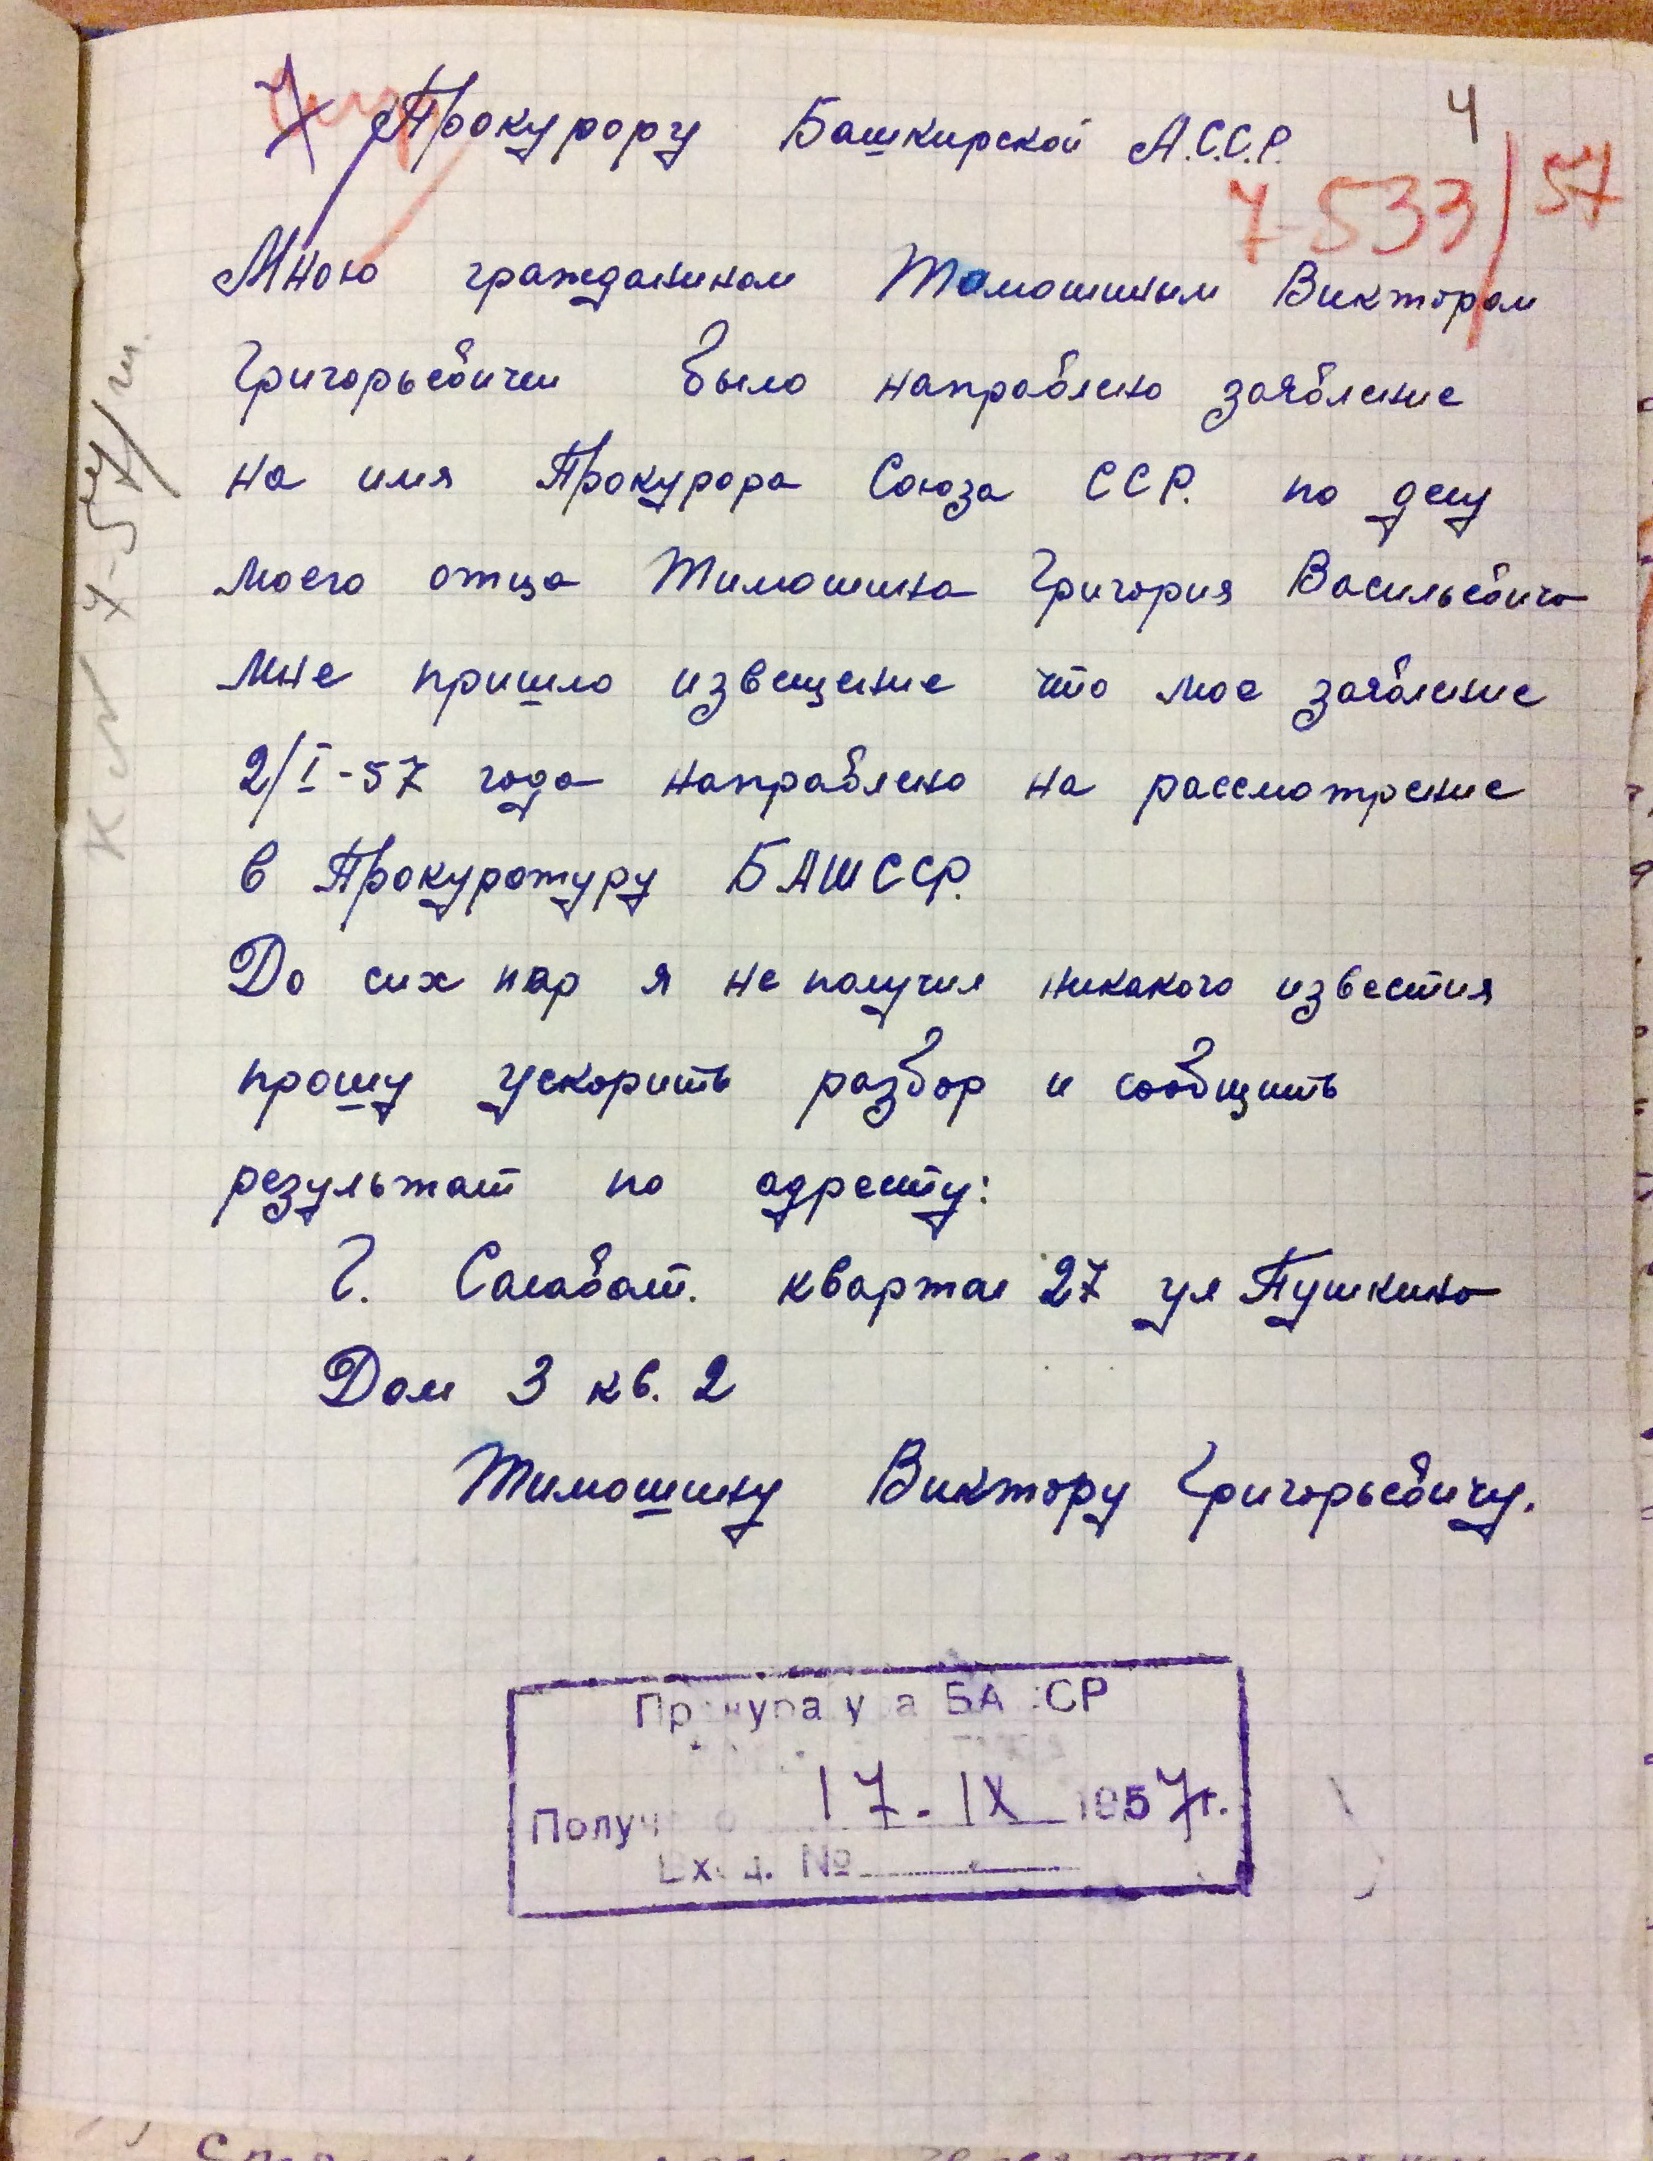 4
Прокурору Башкирской А.С.С.Р.
7-533/57
Мною гражданином Тамошиным Виктором
Григорьевичем было направлено заявление
на имя Прокурора Союза ССР. по делу
моего отца Тимошина Григория Васильевича
мне пришло извещение что мое заявление
2/I-57 года направлено на рассмотрение
в Прокуратуру БАШССР.
До сих пор я не получил никакого известия
прошу ускорить разбор и сообщить
результат по адресту:
Г. Салават. квартал 27 ул Пушкина
Дом 3 кв. 2
Тимошину Виктору Григорьевичу.
Прокуратура БАССР
Получено 17. IX 1957г.
Вход. №